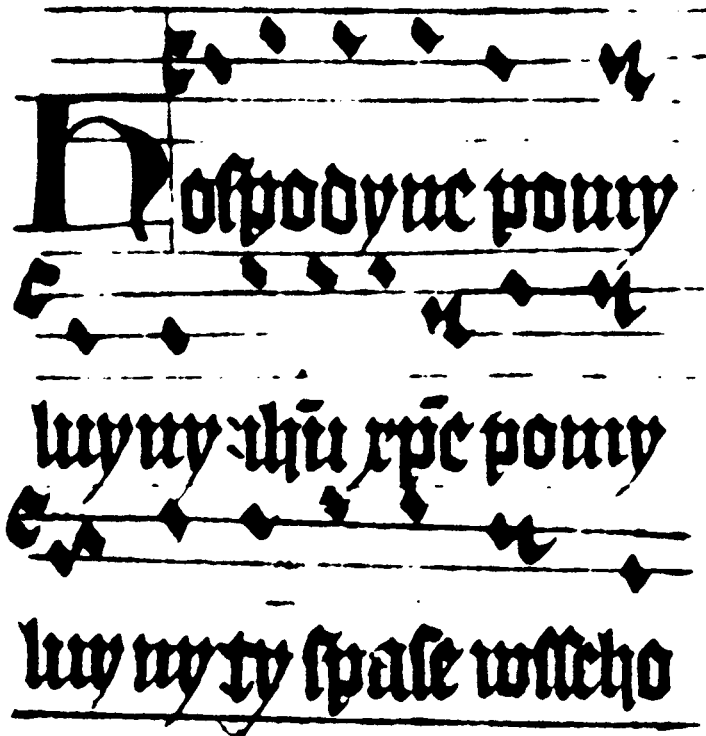 Hoſpodyne pomy
luy ny : ihū xp̄e pomy
luy ny ty ſpaſe wſſeho